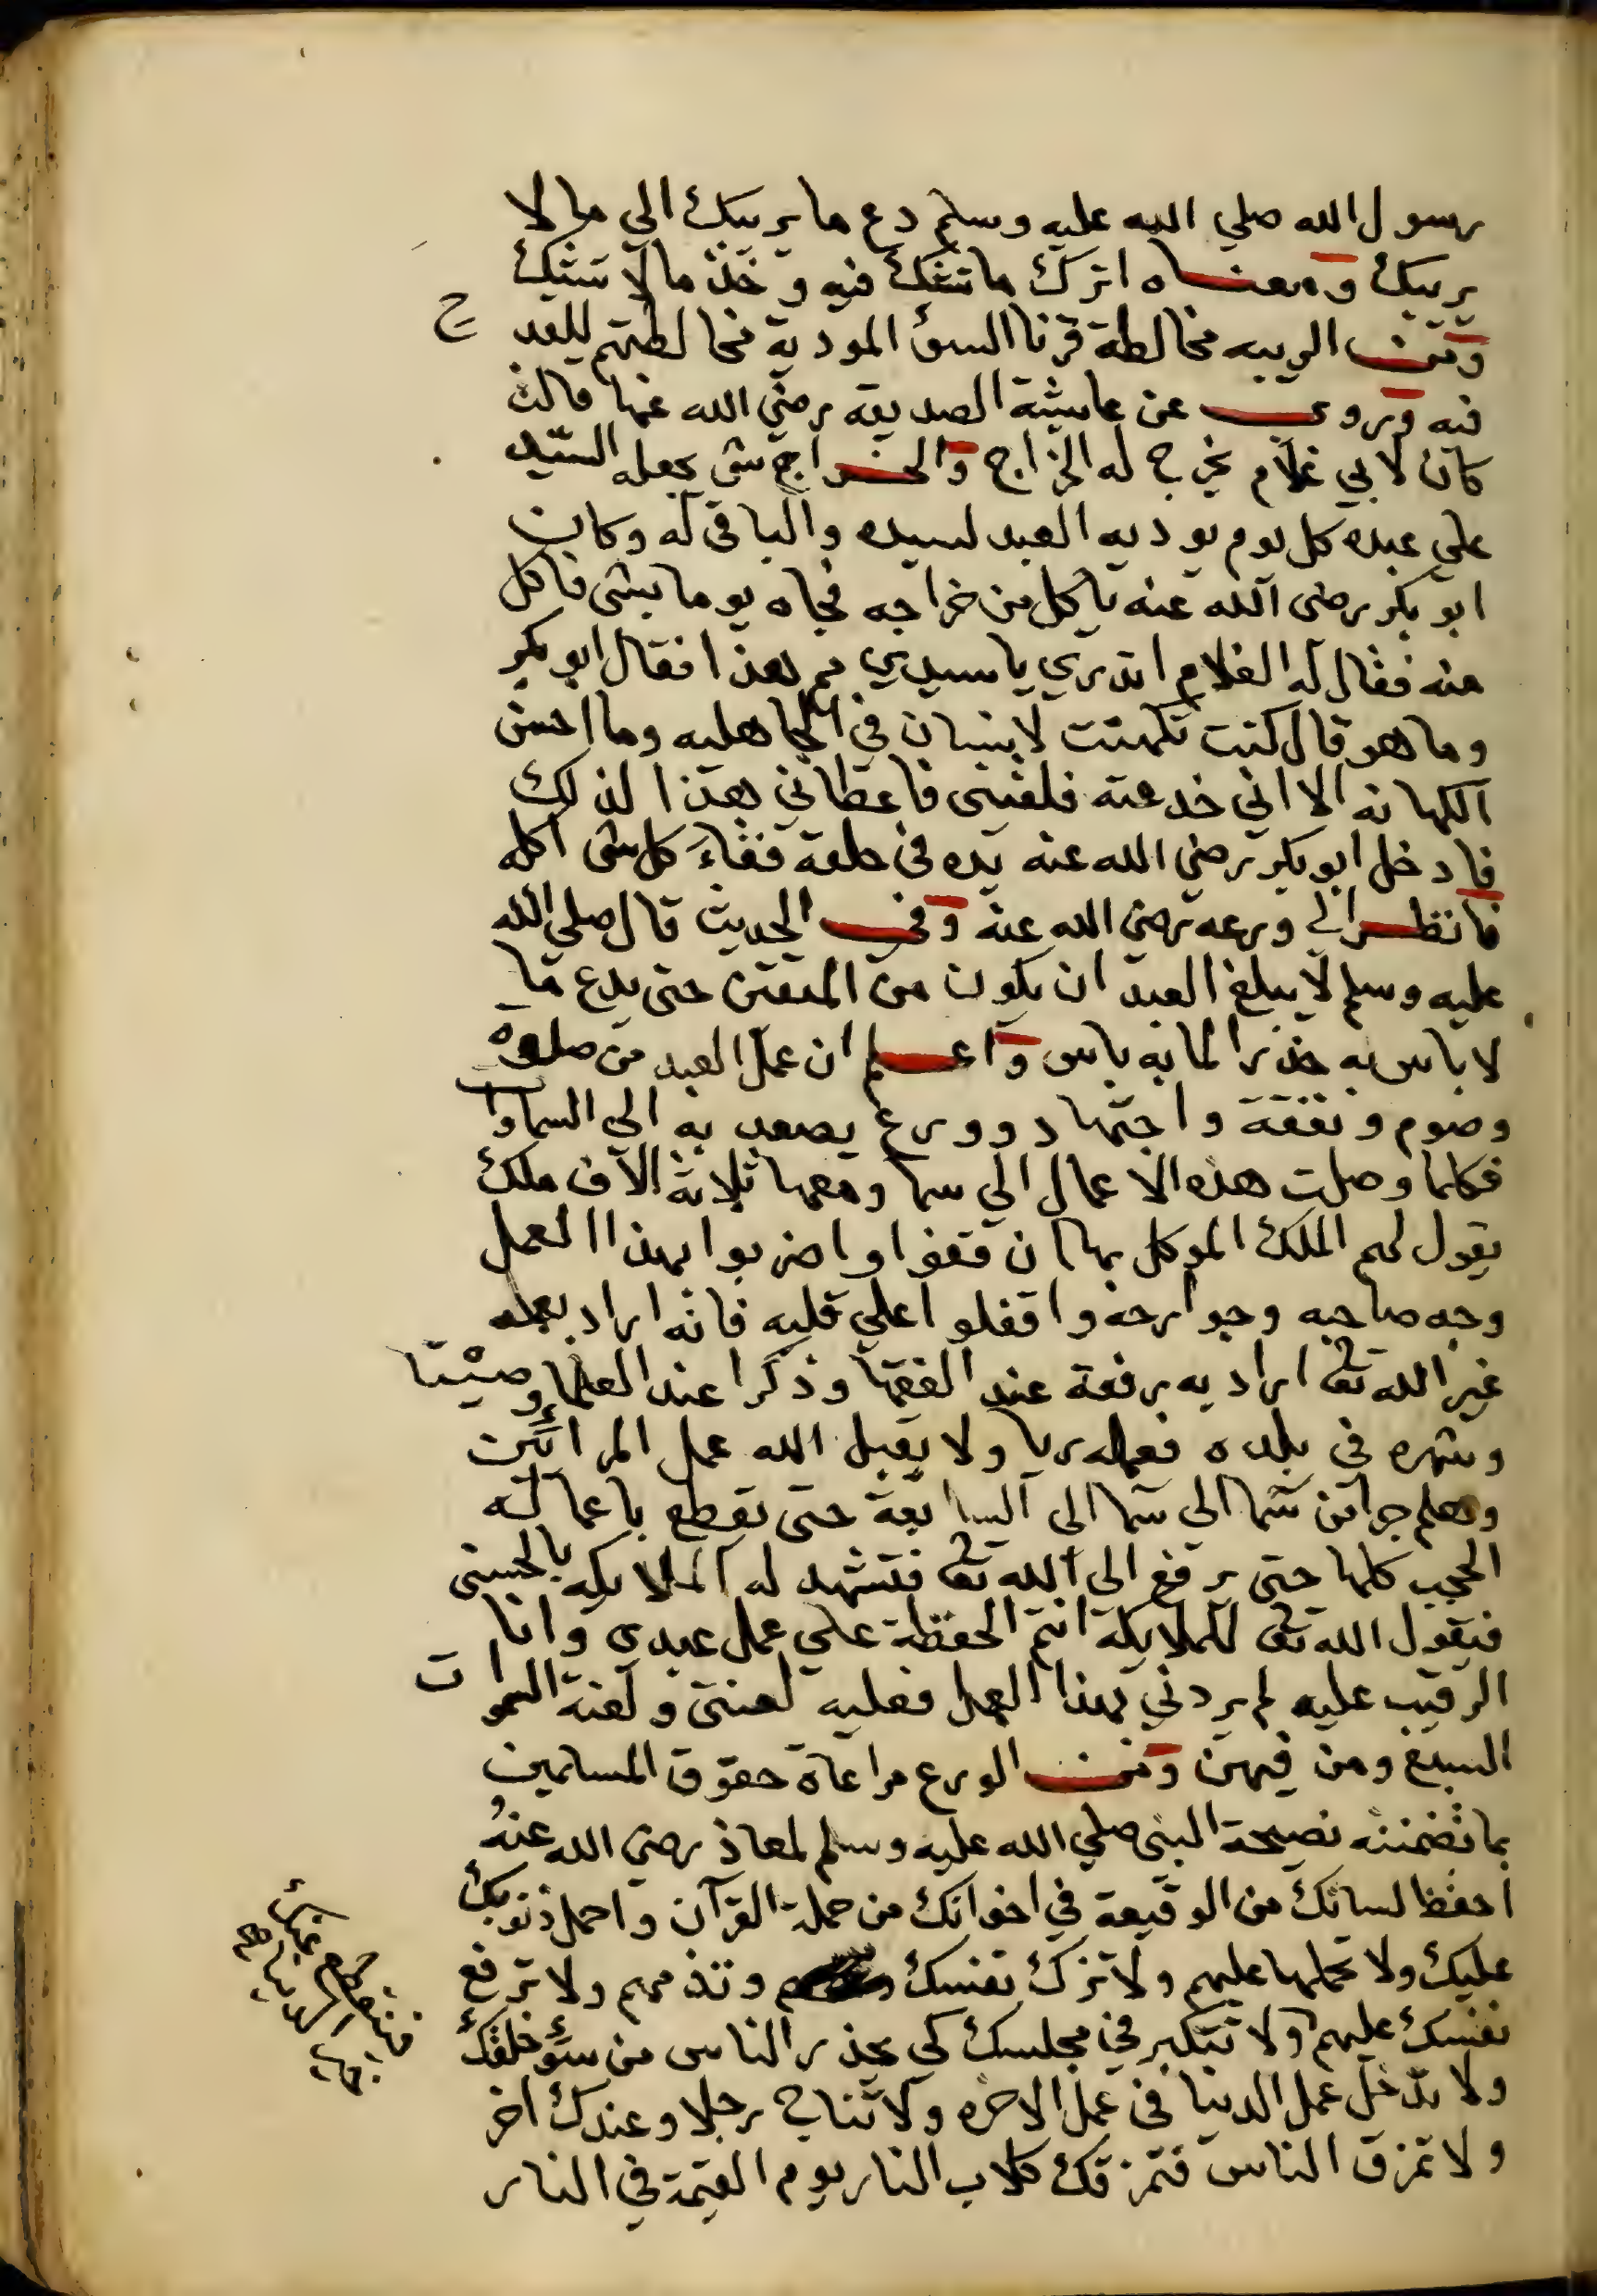 رسول الله صلي الله عليه وسلم دع ما يريبك الي ما لا
يريبك ومعناه اترك ما تشك فيه وخذ ما لا تشك
ومن الريبه مخالطة قرنا السؤ المودية مخالطتهم للقدح
فيه وروي عن عايشة الصديقة رضي الله عنها قالت
كان لابي غلام يخرج له الخراج والخراج شى يجعله السيد
علي عبده كل يوم يوديه العبد لسيده والباقى له وكان
ابو بكر رضى الله عنه ياكل من خراجه فجاه يوما بشى فاكل
منه فقال له الغلام اتدري يا سيدي مم هذا فقال ابو بكر
وما هو قال كنت تكهنت لانسان في الجاهليه وما احسن
الكهانه الا اني خدعته فلقينى فاعطاني هذا لذلك
فادخل ابو بكر رضي الله عنه يده في حلقه فقاء كل شى اكله
فانظر الي ورعه رضي الله عنه وفي الحديث قال صلي الله
عليه وسلم لا يبلغ العبد ان يكون من المتقين حتى يدع ما
لا باس به حذرا لما به باس واعلم ان عمل العبد من صلوة
وصوم ونفقة واجتهاد وورع يصعد به الي السماوات
فكلما وصلت هذه الاعمال الي سما ومعها ثلاثة الاف ملك
يقول لهم الملك الموكل بها ان قفوا واضربوا بهذا العمل
وجه صاحبه وجوارحه واقفلوا علي قلبه فانه اراد بعمله
غير الله تعا اراد به رفعة عند الفقها وذكرا عند العلما وصيتا
وشهره في بلده فعمله ريا ولا يقبل الله عمل المرائين
وهلم جرا من سما الى سما الى السابعة حتى تقطع باعماله
الحجب كلها حتى يرفع الي الله تعا فتشهد له الملايكه بالحسنى
فيقول الله تعا للملايكة انتم الحفظة علي عمل عبدى وانا
الرقيب عليه لم يردني بهذا العمل فعليه لعنتى ولعنة السموات
السبع ومن فيهن ومن الورع مراعاة حقوق المسلمين
بما تضمنته نصيحة النبى صلي الله عليه وسلم لمعاذ رضي الله عنه
احفظ لسانك من الوقيعة في اخوانك من حملة القرآن واحمل ذنوبك
عليك ولا تحملها عليهم ولا تزك نفسك وتذمهم ولا ترفع
نفسك عليهم ولا تتكبر في مجلسك كي يحذر الناس من سوء خلقك
ولا تدخل عمل الدنيا في عمل الاخره ولا تناج رجلا وعندك اخر
ولا تمزق الناس فتمزقك كلاب النار يوم القيمة في النار
فينقطع عنك
خير الدنيا